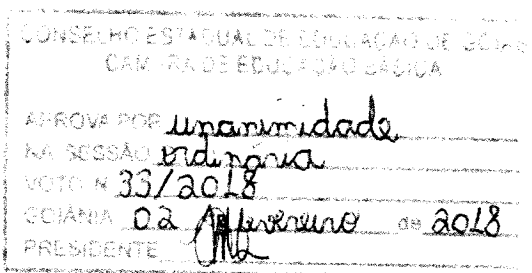 CONSELHO ESTADUAL DE EDUCAÇÃO DE GOIÁS
CAMARA DE EDUCAÇÃO BÁSICA
APROVA POR unanimidade
NA SESSÃO ordinária
VOTO N 33/2018
GOIÂNIA 02 fevereiro de 2018
PRESIDENTE